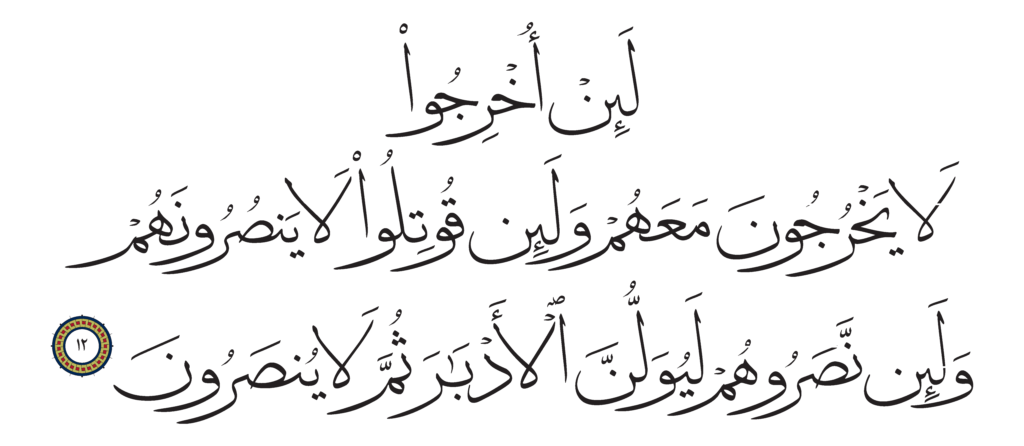 لَئِنۡ أُخۡرِجُواْ
لَا يَخۡرُجُونَ مَعَهُمۡ وَلَئِن قُوتِلُواْ لَا يَنصُرُونَهُمۡ
وَلَئِن نَّصَرُوهُمۡ لَيُوَلُّنَّ ٱلۡأَدۡبَٰرَ ثُمَّ لَا يُنصَرُونَ ١٢